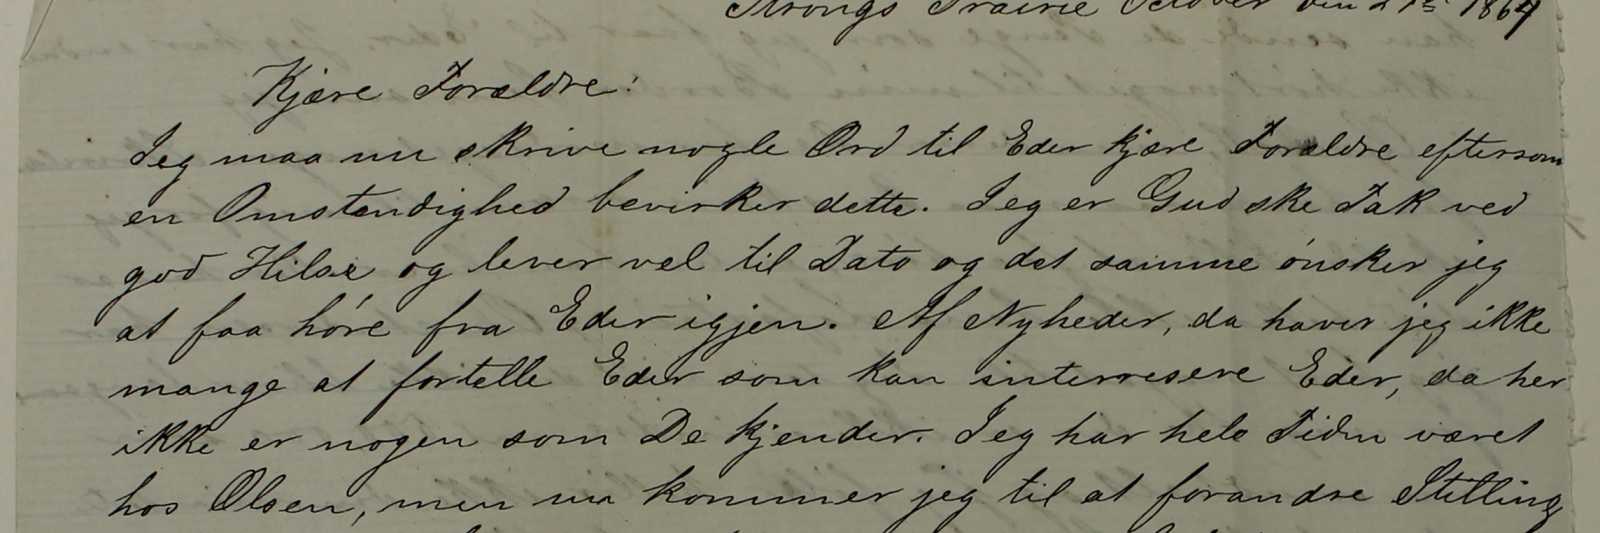 Strongs Prairie October den 21de 1864
Kjære Forældre!
Jeg maa nu skrive nogle Ord til Eder kjære Forældre eftersom
en Omstændighed bevirker dette. Jeg er Gud ske Tak ved
god Hilse og lever vel til Dato og det samme ønsker jeg
at faa høre fra Eder igjen. Af Nyheder, da haver jeg ikke
mange at fortelle Eder som kan interresere Eder, da her
ikke er nogen som De kjender. Jeg har hele Tiden været
hos Olsen, men nu kommer jeg til at forandre Stilling